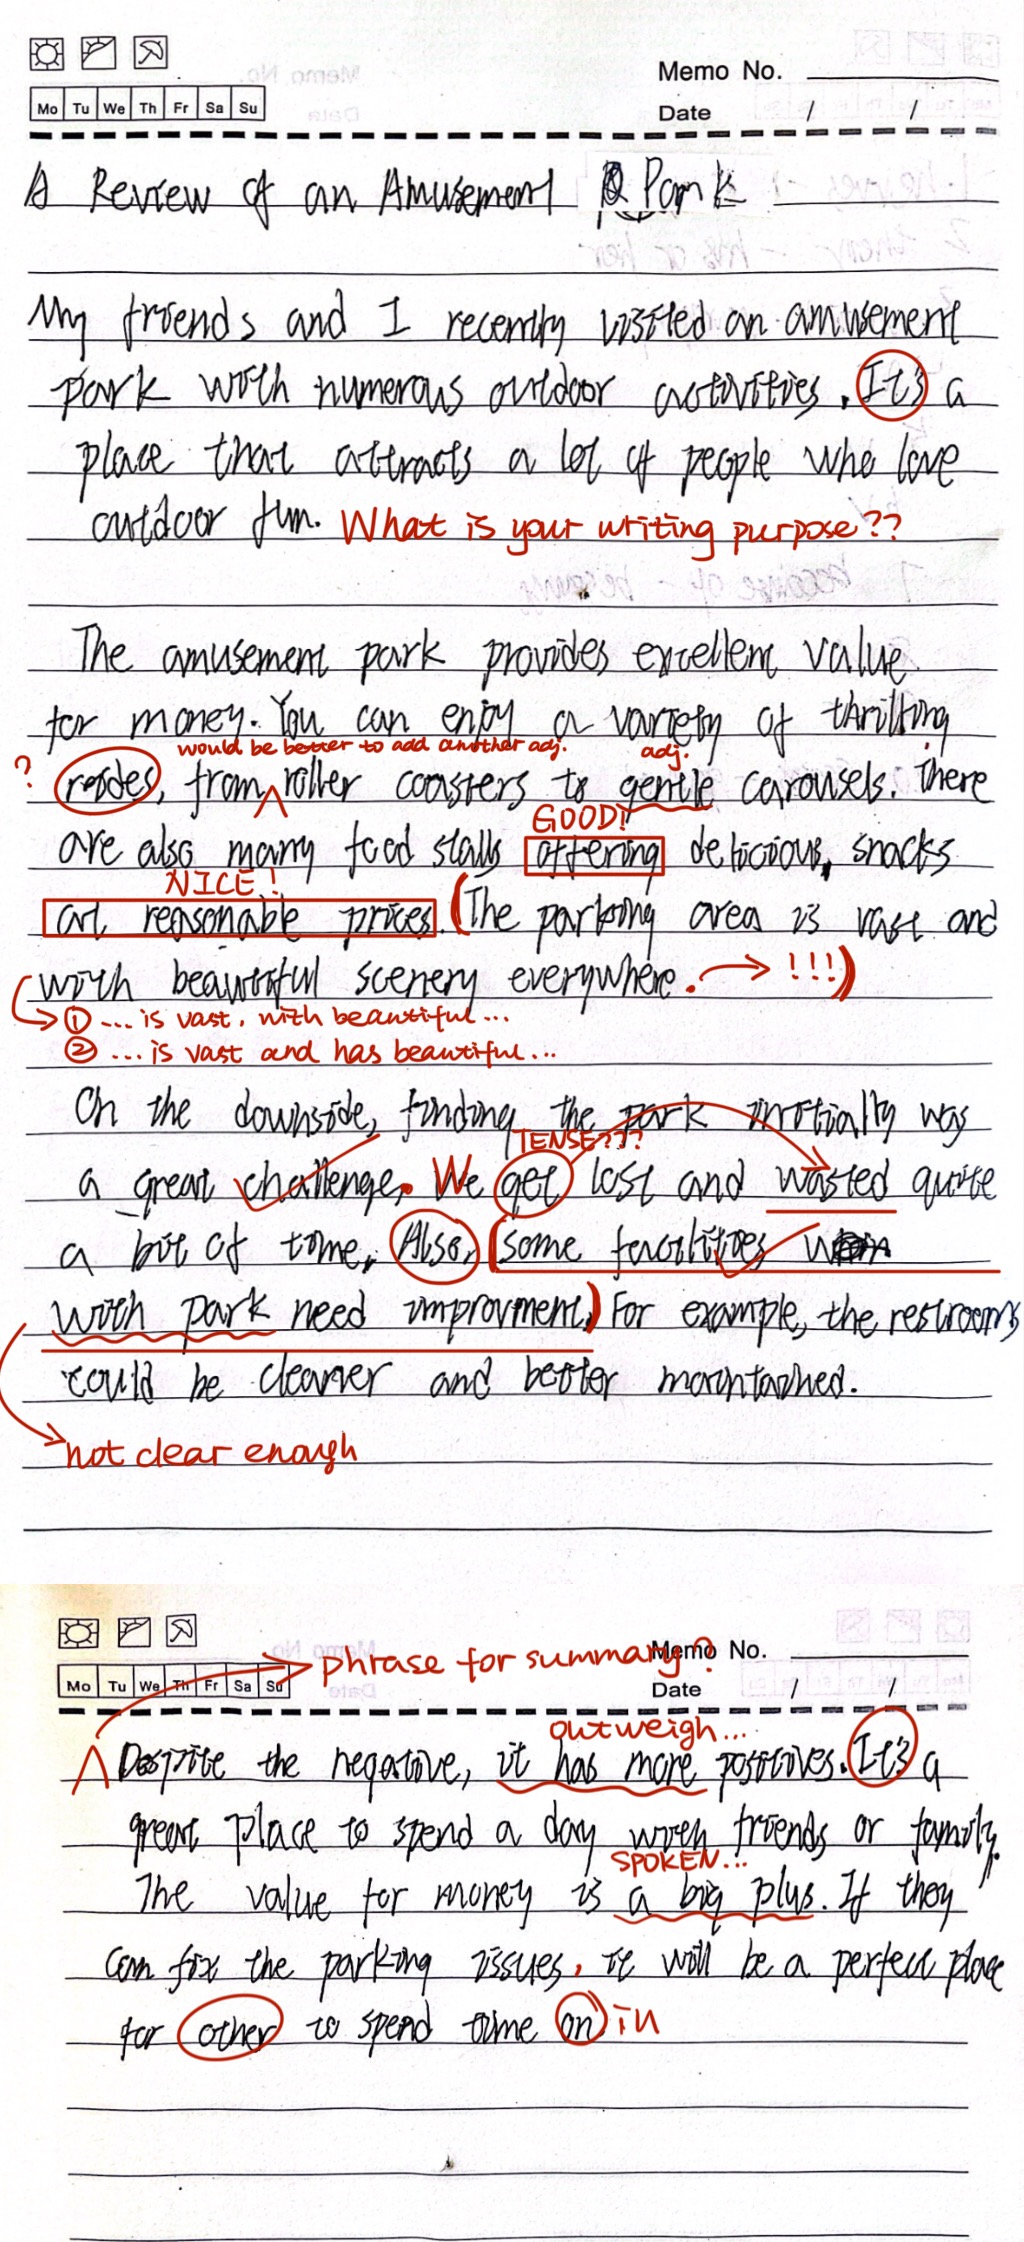 Memo No.
Mo Tu We Th Fr Sa Su
Date / /
A Review of an Amusement Park
My friends and I recently visited an amusement
park with numerous outdoor activities. It's a
place that attracts a lot of people who love
outdoor fun. What is your writing purpose??
The amusement park provides excellent value
for money. You can enjoy a variety of thrilling
would be better to add another adj. adj.
? reides, from roller coasters to gentle carousels. There
GOOD!
are also many food stalls offering delicious, snacks
NICE!
at reasonable prices. (The parking area is vast and
with beautiful scenery everywhere. → !!!)
① ... is vast, with beautiful ...
② ... is vast and has beautiful ...
On the downside, finding the park initially was
TENSE???
a great challenge. We get lost and wasted quite
a bit of time. Also, (some facilities
with park need improvment.) For example, the restrooms
could be cleaner and better maintained.
not clear enough
phrase for summary?
Memo No.
Mo Tu We Th Fr Sa Su
Date / /
outweigh...
Despite the negative, it has more positives. It's a
great place to spend a day with friends or family.
SPOKEN...
The value for money is a big plus. If they
can fix the parking issues, it will be a perfect place
for other to spend time on in